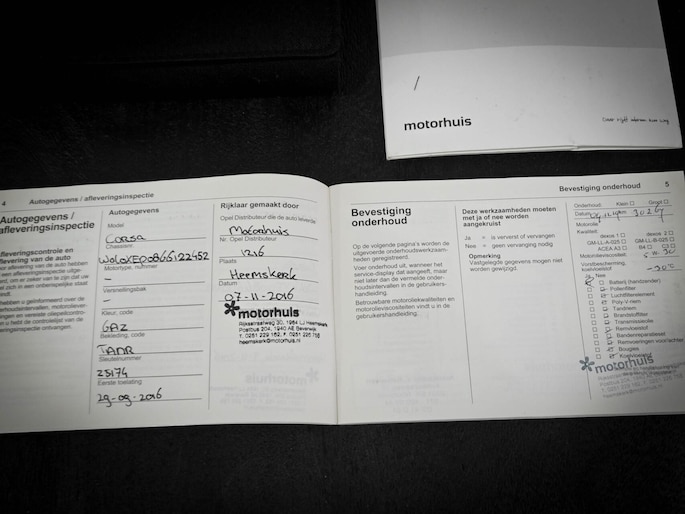 motorhuis
4
Autogegevens / afleveringsinspectie
Autogegevens /
afleveringsinspectie
Autogegevens
Model
Corsa
Chassisnr.
Motortype, nummer
–
Versnellingsbak
–
Kleur, code
GAZ
Bekleding, code
TANR
Sleutelnummer
Eerste toelating
29-09-2016
Rijklaar gemaakt door
Opel Distributeur die de auto leverde
Motorhuis
Nr. Opel Distributeur
1216
Plaats
Heemskerk
Datum
07-11-2016
motorhuis
Rijksstraatweg 30, 1964 LJ Heemskerk
Postbus 204, 1940 AE Beverwijk
heemskerk@motorhuis.nl
Bevestiging onderhoud
5
Bevestiging
onderhoud
Op de volgende pagina's worden de
uitgevoerde onderhoudswerkzaam-
heden geregistreerd.
Voer onderhoud uit, wanneer het
service-display dat aangeeft, maar
niet later dan de vermelde onder-
houdsintervallen in de gebruikers-
handleiding.
Betrouwbare motoroliekwaliteiten en
motorolieviscositeiten vindt u in de
gebruikershandleiding.
Deze werkzaamheden moeten
met ja of nee worden
aangekruist
Ja = is ververst of vervangen
Nee = geen vervanging nodig
Opmerking
Vastgelegde gegevens mogen niet
worden gewijzigd.
Onderhoud: Klein Groot
Datum
Motorolie
Kwaliteit: dexos 1 dexos 2
GM-LL-A-025 GM-LL-B-025
ACEA A3 B4 C3
Motorolieviscositeit:
Vorstbescherming,
koelvloeistof
Ja Nee
Batterij (handzender)
Pollenfilter
Luchtfilterelement
Poly-V-riem
Tandriem
Brandstoffilter
Transmissieolie
Remvloeistof
Bandenreparatieset
Remvoeringen voor/achter
Bougies
Koelvloeistof
motorhuis